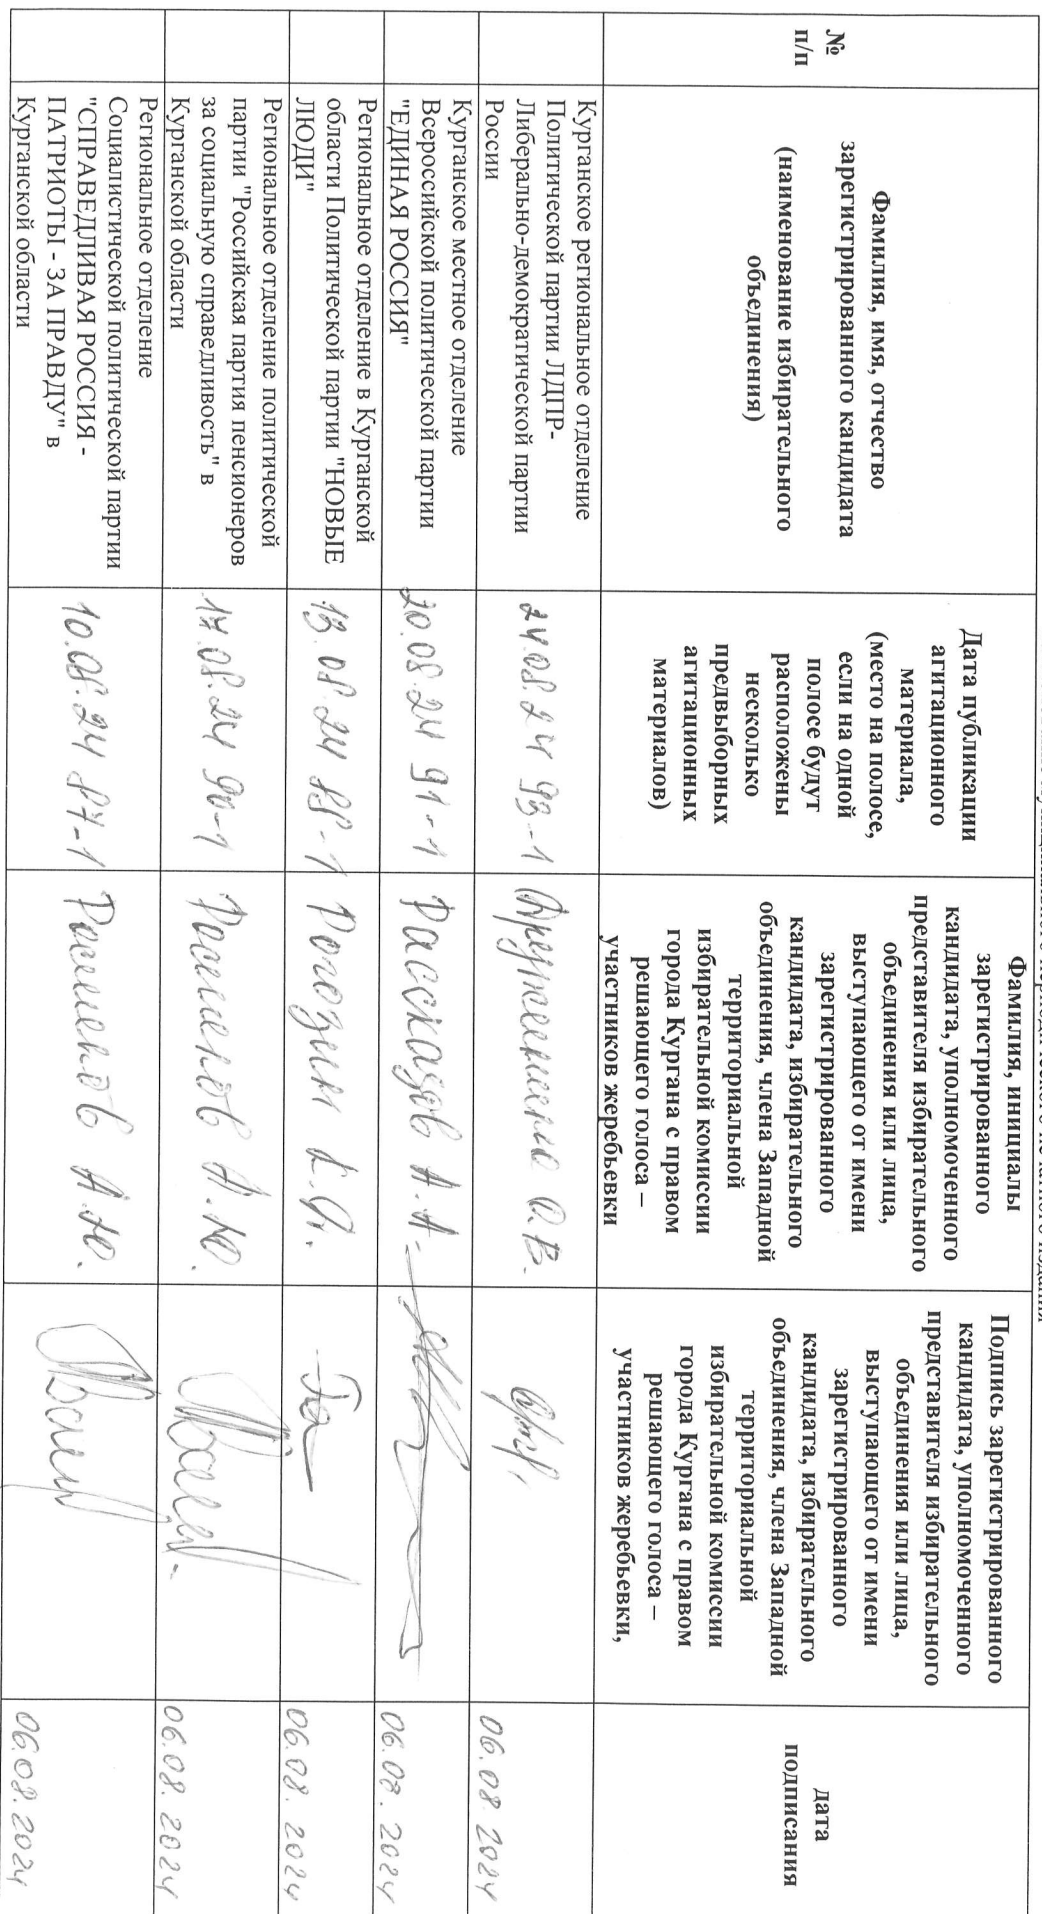 №
п/п
Фамилия, имя, отчество
зарегистрированного кандидата
(наименование избирательного
объединения)
Дата публикации
агитационного
материала,
(место на полосе,
если на одной
полосе будут
расположены
несколько
предвыборных
агитационных
материалов)
Фамилия, инициалы
зарегистрированного
кандидата, уполномоченного
представителя избирательного
объединения или лица,
выступающего от имени
зарегистрированного
кандидата, избирательного
объединения, члена Западной
территориальной
избирательной комиссии
города Кургана с правом
решающего голоса –
участников жеребьевки
Подпись зарегистрированного
кандидата, уполномоченного
представителя избирательного
объединения или лица,
выступающего от имени
зарегистрированного
кандидата, избирательного
объединения, члена Западной
территориальной
избирательной комиссии
города Кургана с правом
решающего голоса –
участников жеребьевки,
дата
подписания
Курганское региональное отделение
Политической партии ЛДПР-
Либерально-демократической партии
России
24.08.24 93-1
О.В.
06.08 2024
Курганское местное отделение
Всероссийской политической партии
"ЕДИНАЯ РОССИЯ"
20.08.24 91-1
Рассказов А.А.
06.08. 2024
Региональное отделение в Курганской
области Политической партии "НОВЫЕ
ЛЮДИ"
13.08.24 88-1
Рогозин
06.08. 2024
Региональное отделение политической
партии "Российская партия пенсионеров
за социальную справедливость" в
Курганской области
17.08.24 90-1
А.Ю.
06.08. 2024
Региональное отделение
Социалистической политической партии
"СПРАВЕДЛИВАЯ РОССИЯ -
ПАТРИОТЫ - ЗА ПРАВДУ" в
Курганской области
10.08.24 87-1
А.Ю.
06.08.2024